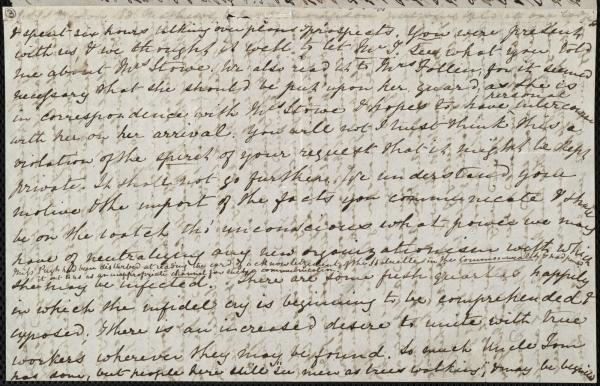 3
I spent six hours talking over plans & prospects. You were present
with us & we thought it well to let Mr. T. see what you told
me about Mrs Stowe, we also read it to Mrs Follen, for it seemed
necessary that she should be put upon her guard as she is
in correspondence with Mrs Stowe & hopes to have personal intercourse
with her on her arrival. You will not I must think this a
violation of the spirit of your request that it might be kept
private. It shall not go further, we understand your
motive & the import of the facts you communicate & shall
be on the watch tho' unconscious what power we may
have of neutralizing any new organization with which
Miss Pugh had been disturbed at
she may be infected. There are some fresh quarters happily
in which the infidel cry is beginning to be comprehended &
exposed. There is an increased desire to unite with true
workers wherever they may be found. So much Uncle Tom
has done, but people here still see men as trees walking, & may be